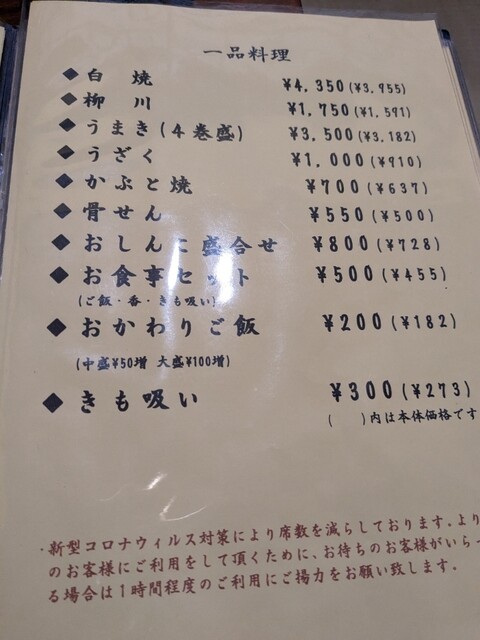 一品料理
◆白焼 ¥4,350(¥3,955)
◆柳川 ¥1,750(¥1,591)
◆うまき(4巻盛) ¥3,500(¥3,182)
◆うざく ¥1,000(¥910)
◆かぶと焼 ¥700(¥637)
◆骨せん ¥550(¥500)
◆おしんこ盛合せ ¥800(¥728)
◆お食事セット ¥500(¥455)
(ご飯・香・きも吸い)
◆おかわりご飯 ¥200(¥182)
(中盛¥50増 大盛¥100増)
◆きも吸い ¥300(¥273)
( )内は本体価格です
・新型コロナウィルス対策により席数を減らしております。より
のお客様にご利用をして頂くために、お待ちのお客様がいらっ
る場合は1時間程度のご利用にご揚力をお願い致します。